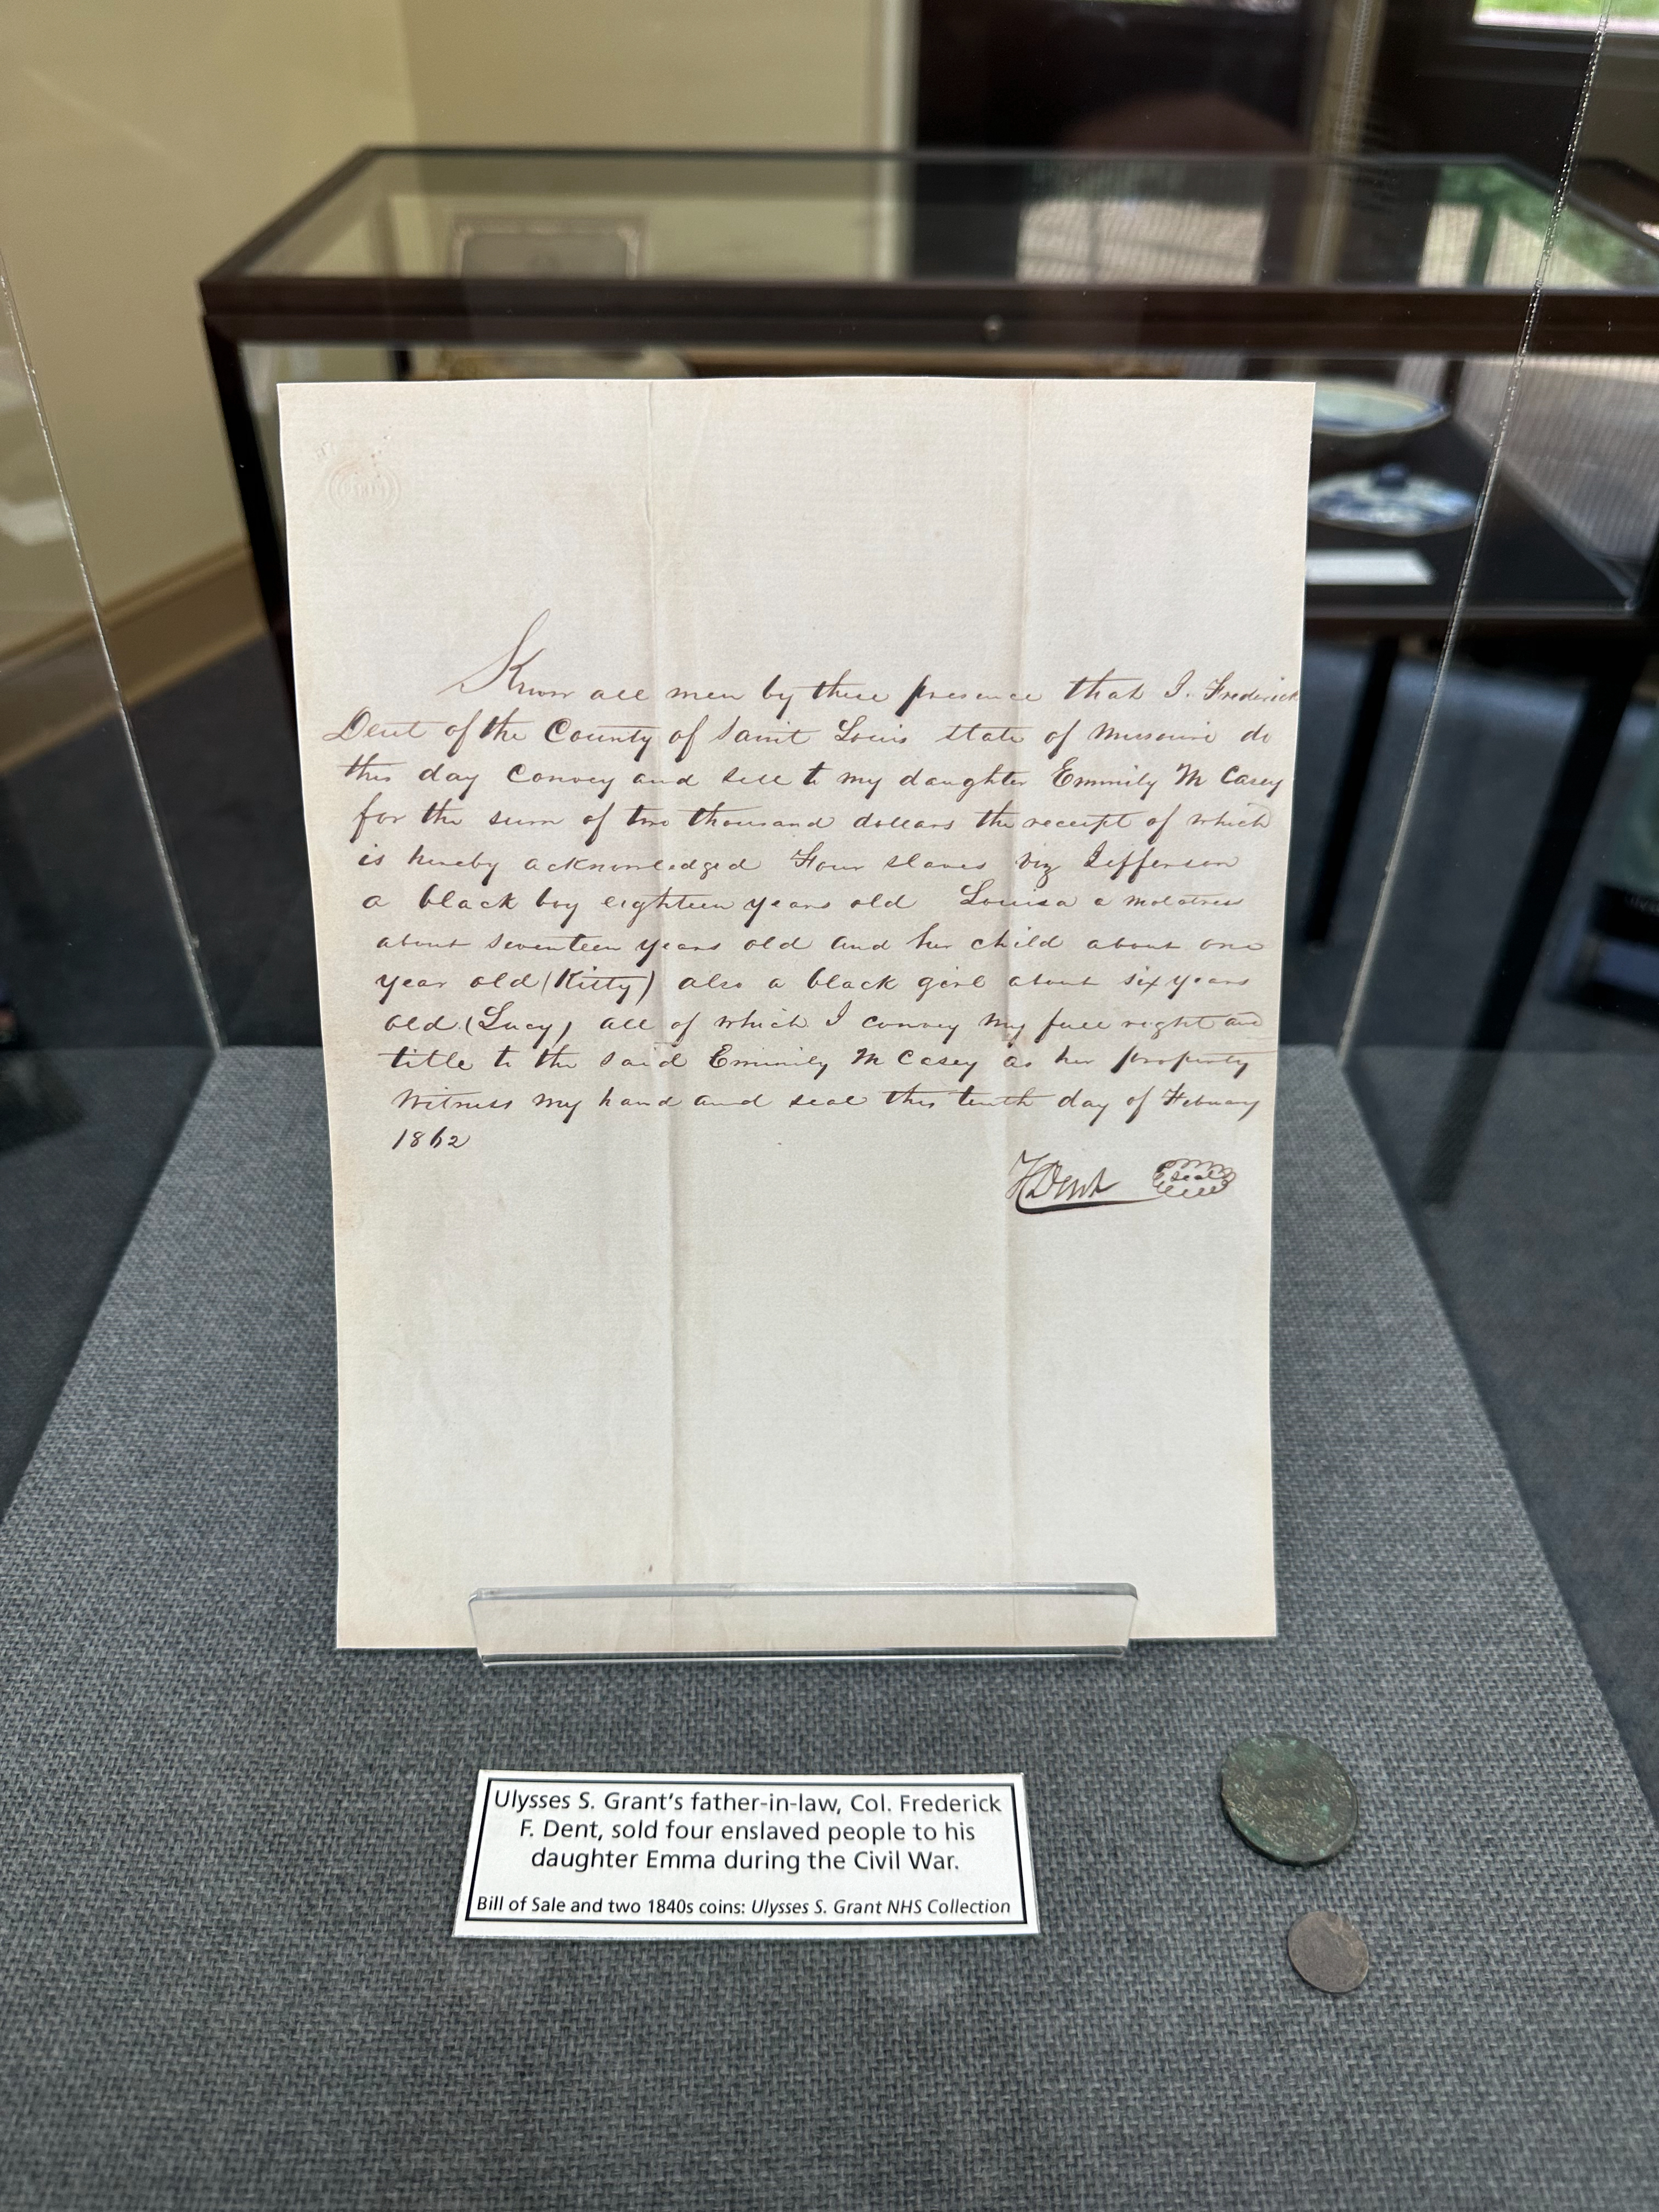 Know all men by these presence that I. Frederick
Dent of the County of Saint Louis state of Missouri do
this day Convey and sell to my daughter Emmily M Casey
for the sum of two thousand dollars the receipt of which
is hereby acknowledged Four slaves viz Jefferson
a black boy eighteen years old Louisa a molatress
about seventeen years old and her child about one
year old (Kitty) also a black girl about six years
old (Lucy) all of which I convey my full right and
title to the said Emmily M Casey as her property
Witness my hand and seal this tenth day of Febuary
1862
F Dent seal
Ulysses S. Grant's father-in-law, Col. Frederick
F. Dent, sold four enslaved people to his
daughter Emma during the Civil War.
Bill of Sale and two 1840s coins: Ulysses S. Grant NHS Collection